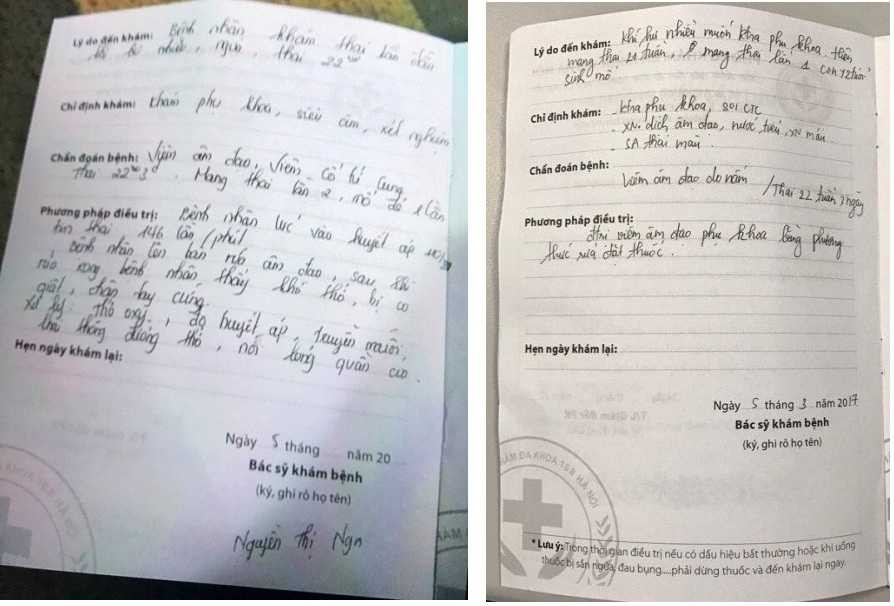 Lý do đến khám: Bệnh nhân khám thai lần đầu
khí hư nhiều, ngứa, thai 22
Chỉ định khám: khám phụ khoa, siêu âm, xét nghiệm
Chẩn đoán bệnh: Viêm âm đạo, viêm cổ tử cung
Thai 22 3. Mang thai lần 2, mổ đẻ 1 lần
Phương pháp điều trị: Bệnh nhân lúc vào huyết áp
tim thai 146 lần/phút
Bệnh nhân lên bàn rửa âm đạo, sau khi
rửa xong bệnh nhân thấy khó thở, bị co
giật, chân tay cứng.
Xử lý: thở oxy, đo huyết áp, truyền muối,
khai thông đường thở, nới lỏng quần áo.
Hẹn ngày khám lại:
Ngày 5 tháng năm 20
Bác sỹ khám bệnh
(ký, ghi rõ họ tên)
Nguyễn Thị Nga
Lý do đến khám: Khí hư nhiều muốn ktra phụ khoa, hiện
mang thai 22 tuần, mang thai lần 2, 1 con
sinh mổ
Chỉ định khám: - ktra phụ khoa, soi CTC
- XN. dịch âm đạo, nước tiểu, XN máu
- SA thai màu.
Chẩn đoán bệnh:
Viêm âm đạo do nấm / Thai 22 tuần 3 ngày
Phương pháp điều trị:
đtrị viêm âm đạo phụ khoa bằng phương
thức rửa đặt thuốc.
Hẹn ngày khám lại:
Ngày 5 tháng 3 năm 2017
Bác sỹ khám bệnh
(ký, ghi rõ họ tên)
ĐA KHOA 168 HÀ NỘI
* Lưu ý: Trong thời gian điều trị nếu có dấu hiệu bất thường hoặc khi uống
thuốc bị sẩn ngứa, đau bụng....phải dừng thuốc và đến khám lại ngay.